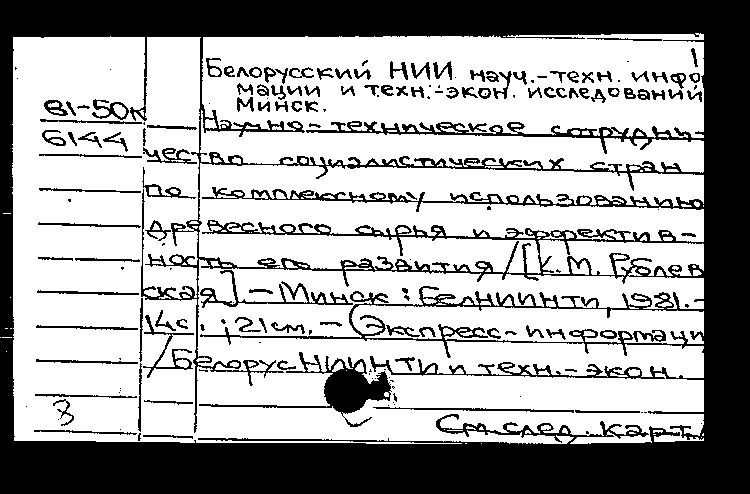 1
Белорусский НИИ науч.-техн. инфо
мации и техн.-экон. исследований
Минск.
81-50к
6144
Научно-техническое сотрудни-
чество социалистических стран
по комплексному использованию
древесного сырья и эффектив-
ность его развития /[К.М. Рублев
ская] - Минск : БелНИИНТИ, 1981.-
14с. ; 21см. - (Экспресс-информаци
/ БелорусНИИНТИ и техн.-экон.
8
См. след. карт.